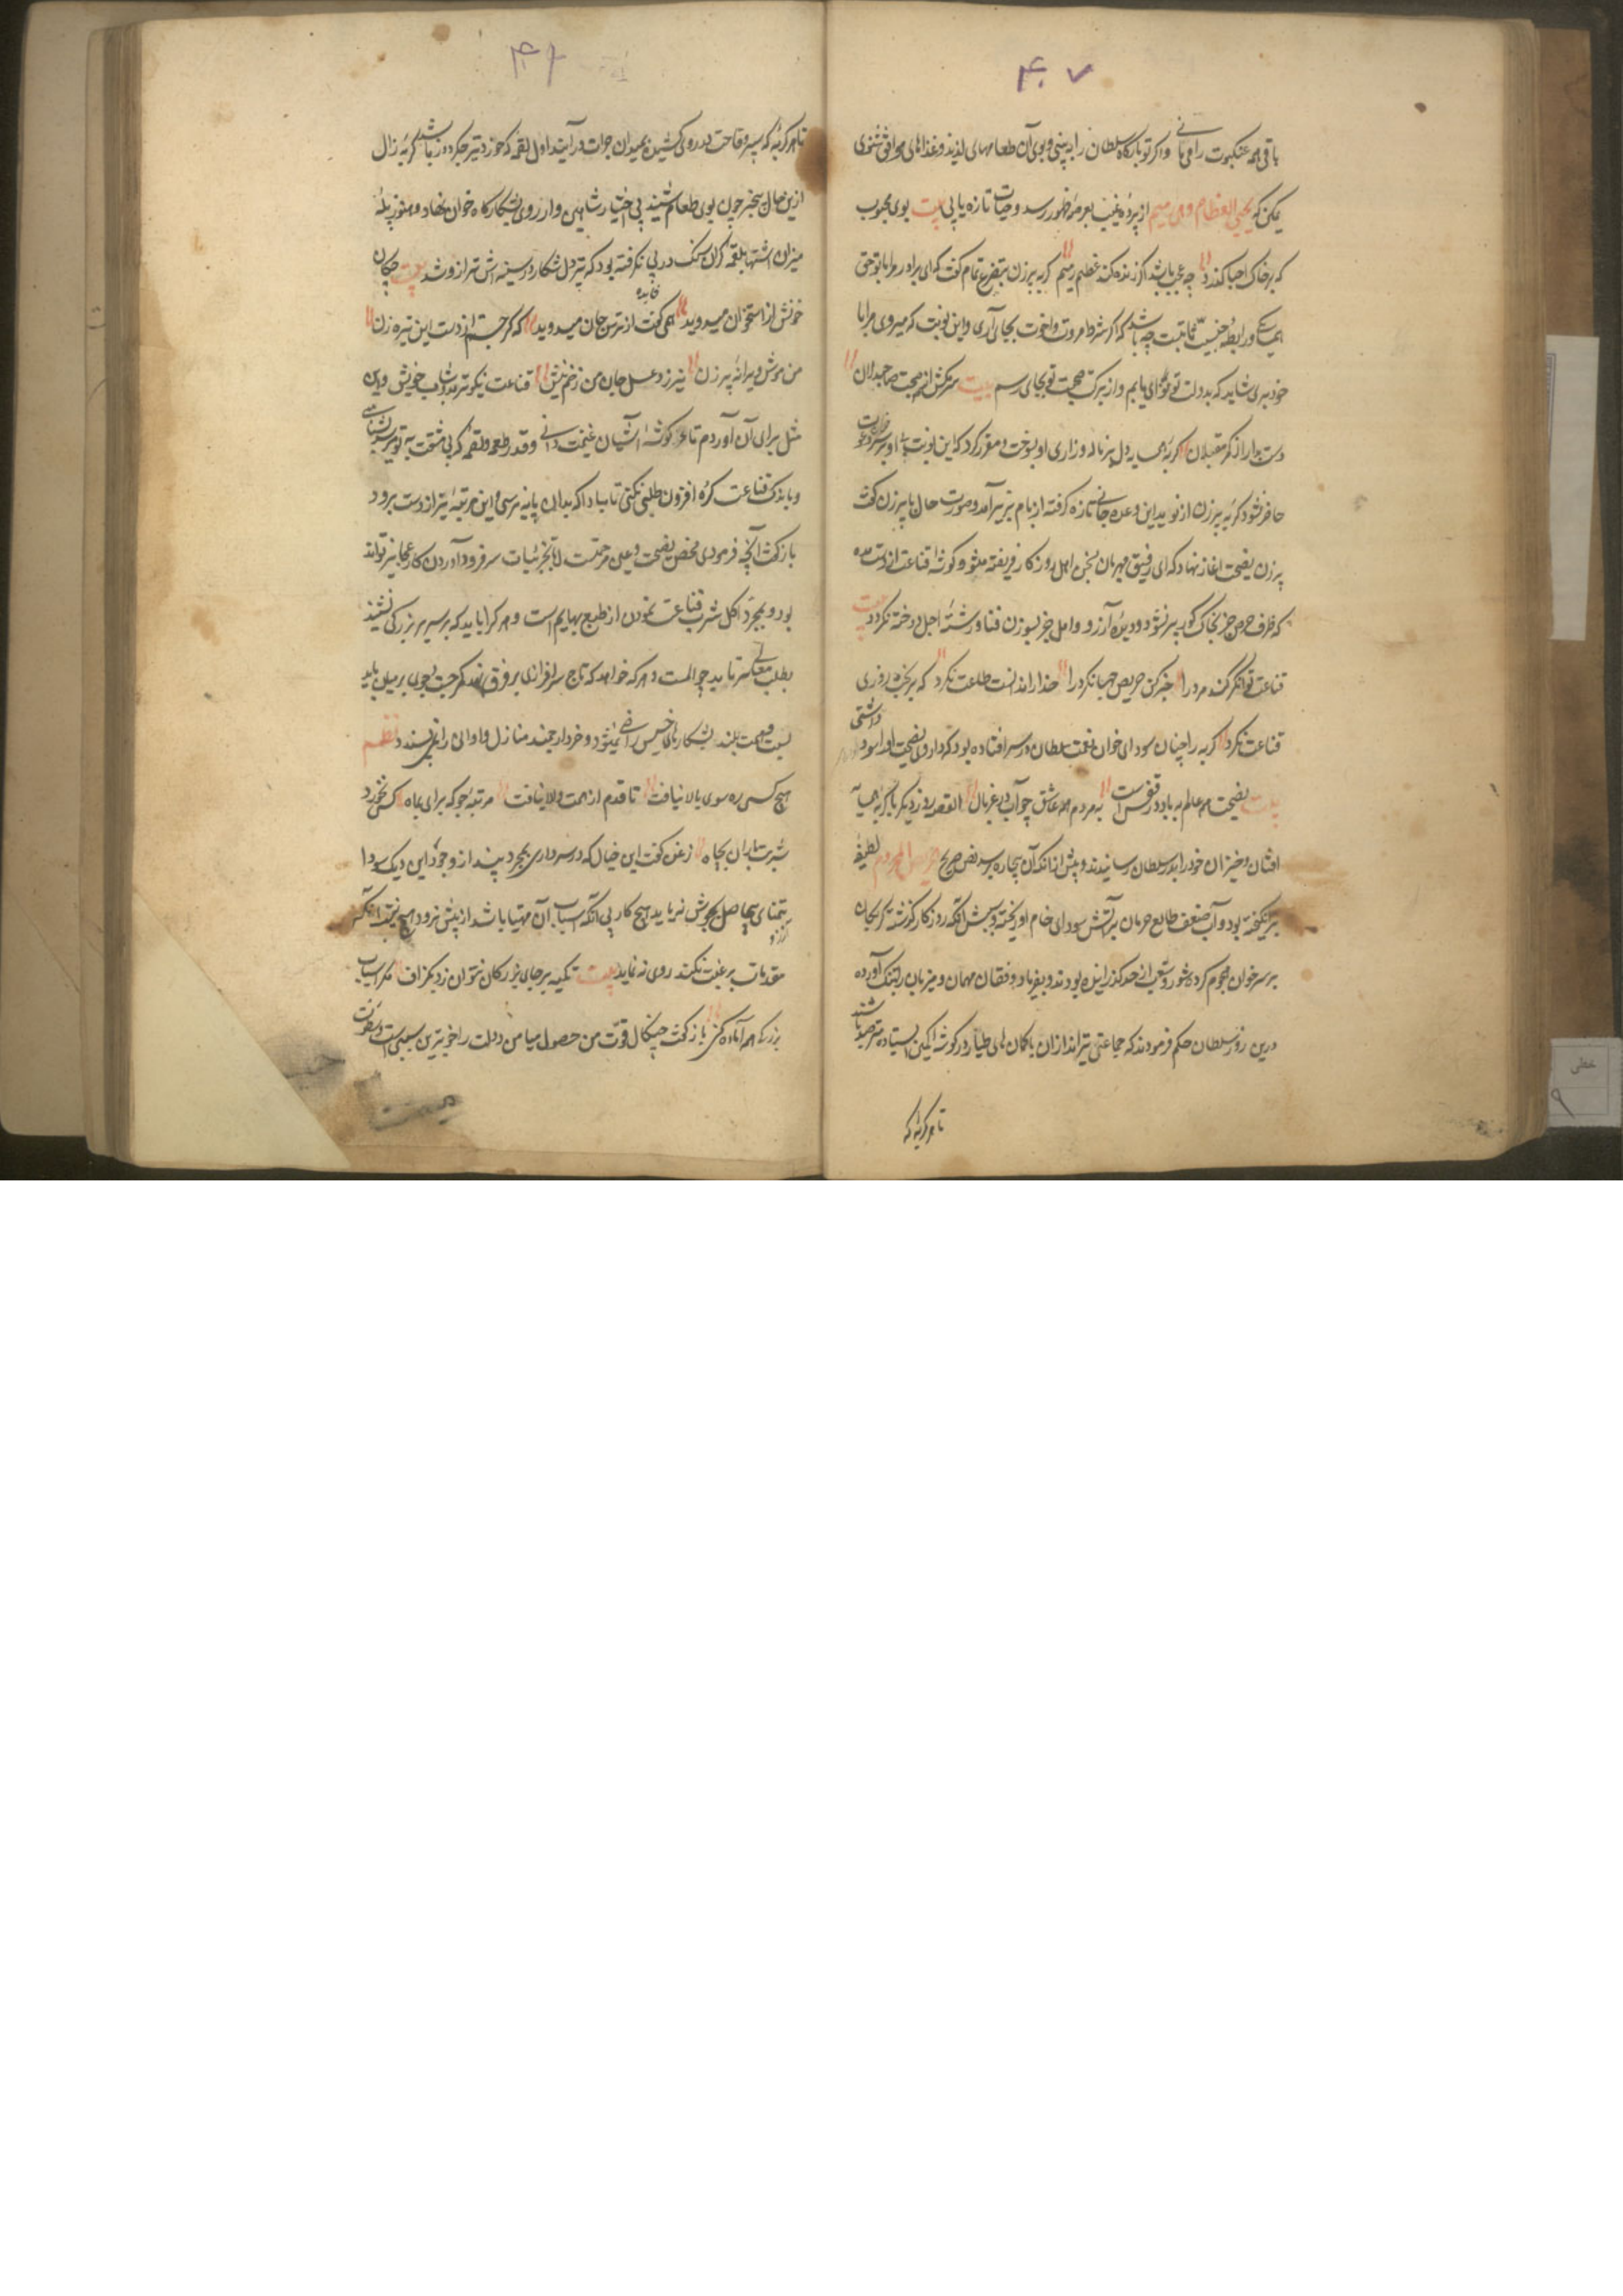 ۴۰۷
باقی همه عنکبوت را می مانی و اگر تو بارگاه سلطان را به بینی و بوی آن طعامهای لذیذ و غذاهای موافق شنوی
یمکن که یحیی العظام و هی رمیم از پرده غیب بعرصه ظهور رسد و حیات تازه یابی بیت بوی محبوب
که بر خاک احبا گذرد چه عجب باشد اگر زنده کند عظم رمیم گربه پیرزن بتضرع تمام گفت که ای برادر مرا با تو حق
همسایگی و رابطه جنسیت ثابتست چه باشد که اگر شرط مروت و اخوت بجای آری و این نوبت که میروی مرا با
خود ببری شاید که بدولت تو نوائی یابم و از برکت صحبت تو بجای رسم بیت سر مکش از صحبت صاحبدلان
دست مدار از کمر مقبلان گربه همسایه را دل بر ناله و زاری او بسوخت و مقرر کرد که این نوبت بی او بر سر دعوت
حاضر نشود گربه پیرزن از نوید این وعده جانی تازه گرفته از بام بزیر آمد و صورت حال با پیرزن گفت
پیرزن نصیحت آغاز نهاد که ای رفیق مهربان بسخن اهل روزگار فریفته مشو و گوشه قناعت از دست مده
که ظرف حرص جز بخاک گور پر نشود و دیده آرزو و امل جز بسوزن فنا و رشته اجل دوخته نگردد بیت
قناعت توانگر کند مرد را خبر کن حریص جهانگرد را خدا را ندانست و طاعت نکرد که بر بخت و روزی
قناعت نکرد گربه را چنان سودای خوان نعمت سلطان در سر افتاده بود که داروی نصیحت او را سود داشتی
بیت نصیحت همه عالم به باد در قفس است به مردم همه عاشق چو آب در غربال القصه روز دیگر با گربه همسایه
افتان و خیزان خود را بدر سلطان رسانیدند و پیش از آنکه آن بیچاره برسد نص صریح الحریص محروم لطیفه
برانگیخته بود و آب ضعف طالع حرمان بر آتش سودای خام او ریخته و سبب آنکه روز گذشته گربکان
بر سر خوان هجوم کرده شور و شغب از حد گذرانیده بودند و بفریاد و فغان مهمان و میزبان را بتنگ آورده
درین روز سلطان حکم فرمودند که جماعتی تیراندازان با کمان های طیار در گوشه کمین ایستاده مترصد باشند
تا هر گربه که
تا هر گربه که سپر وقاحت در روی کشیده بمیدان جرات در آید اول لقمه که خورد تیر جگردوز باشد گربه زال
ازین حال بیخبر چون بوی طعام شنید بی اختیار شاهین وار روی بشکارگاه خوان نهاد و هنوز پله
میزان اشتها بلقمه گران سنگ در پی نگرفته بود که تیر دل شکار در سینه اش ترازو شد بیت چکان
خونش از استخوان میدوید همی گفت از ترس جان میدوید که گر جستم از دست این تیر زن
من و موش ویرانه پیرزن نیرزد عسل جان من زخم نیش قناعت نیکوتر بدوشاب خویش و این
مثل برای آن آوردم تا هم گوشه آشیان غنیمت دانی و قدر طعمه و لقمه که بی مشقت به تو میرسد بشناسی
و باندک قناعت کرده افزون طلبی نکنی تا مبادا که بدان پایه نرسی و این مرتبه نیز از دست برود
باز گفت آنچه فرمودی محض نصیحت و عین مرحمت است اما بجزئیات سر فرود آوردن کار عجایز تواند
بود و بمجرد اکل و شرب قناعت نمودن از طبع بهایم است و هر کرا باید که بر سریر بزرگی نشیند
بطلب معالی سر تا پا چست و هر که خواهد که تاج سرافرازی بر فرق نهد کمر جست و جوی بر میان باید
بست و همت بلند بشکارهای خسیس راضی نمیشود و خردار جمند منازل و اوانی را نمی پسندد نظم
هیچ کسی ره سوی بالا نیافت تا قدم از همت والا نیافت مرتبه جو که برای بماه کس نخورد
شربت باران بچاه زغن گفت این خیال که در سر داری بمجرد پندار وجود این دیگ سودا
بتمنای بیحاصل بجوش نیاید هیچ کار بی آنکه اسباب آن مهیا باشد از پیش نرود و هیچ نتیجه تا آنکه ترتیب
مقدمات بر غبت نکند روی نه نماید بیت تکیه بر جای بزرگان نتوان زد بگزاف مگر اسباب
بزرگی همه آماده کنی باز گفت چنگال قوت من حصول میامن دولت را خوبترین سببی است و سطوت
خطی
۹